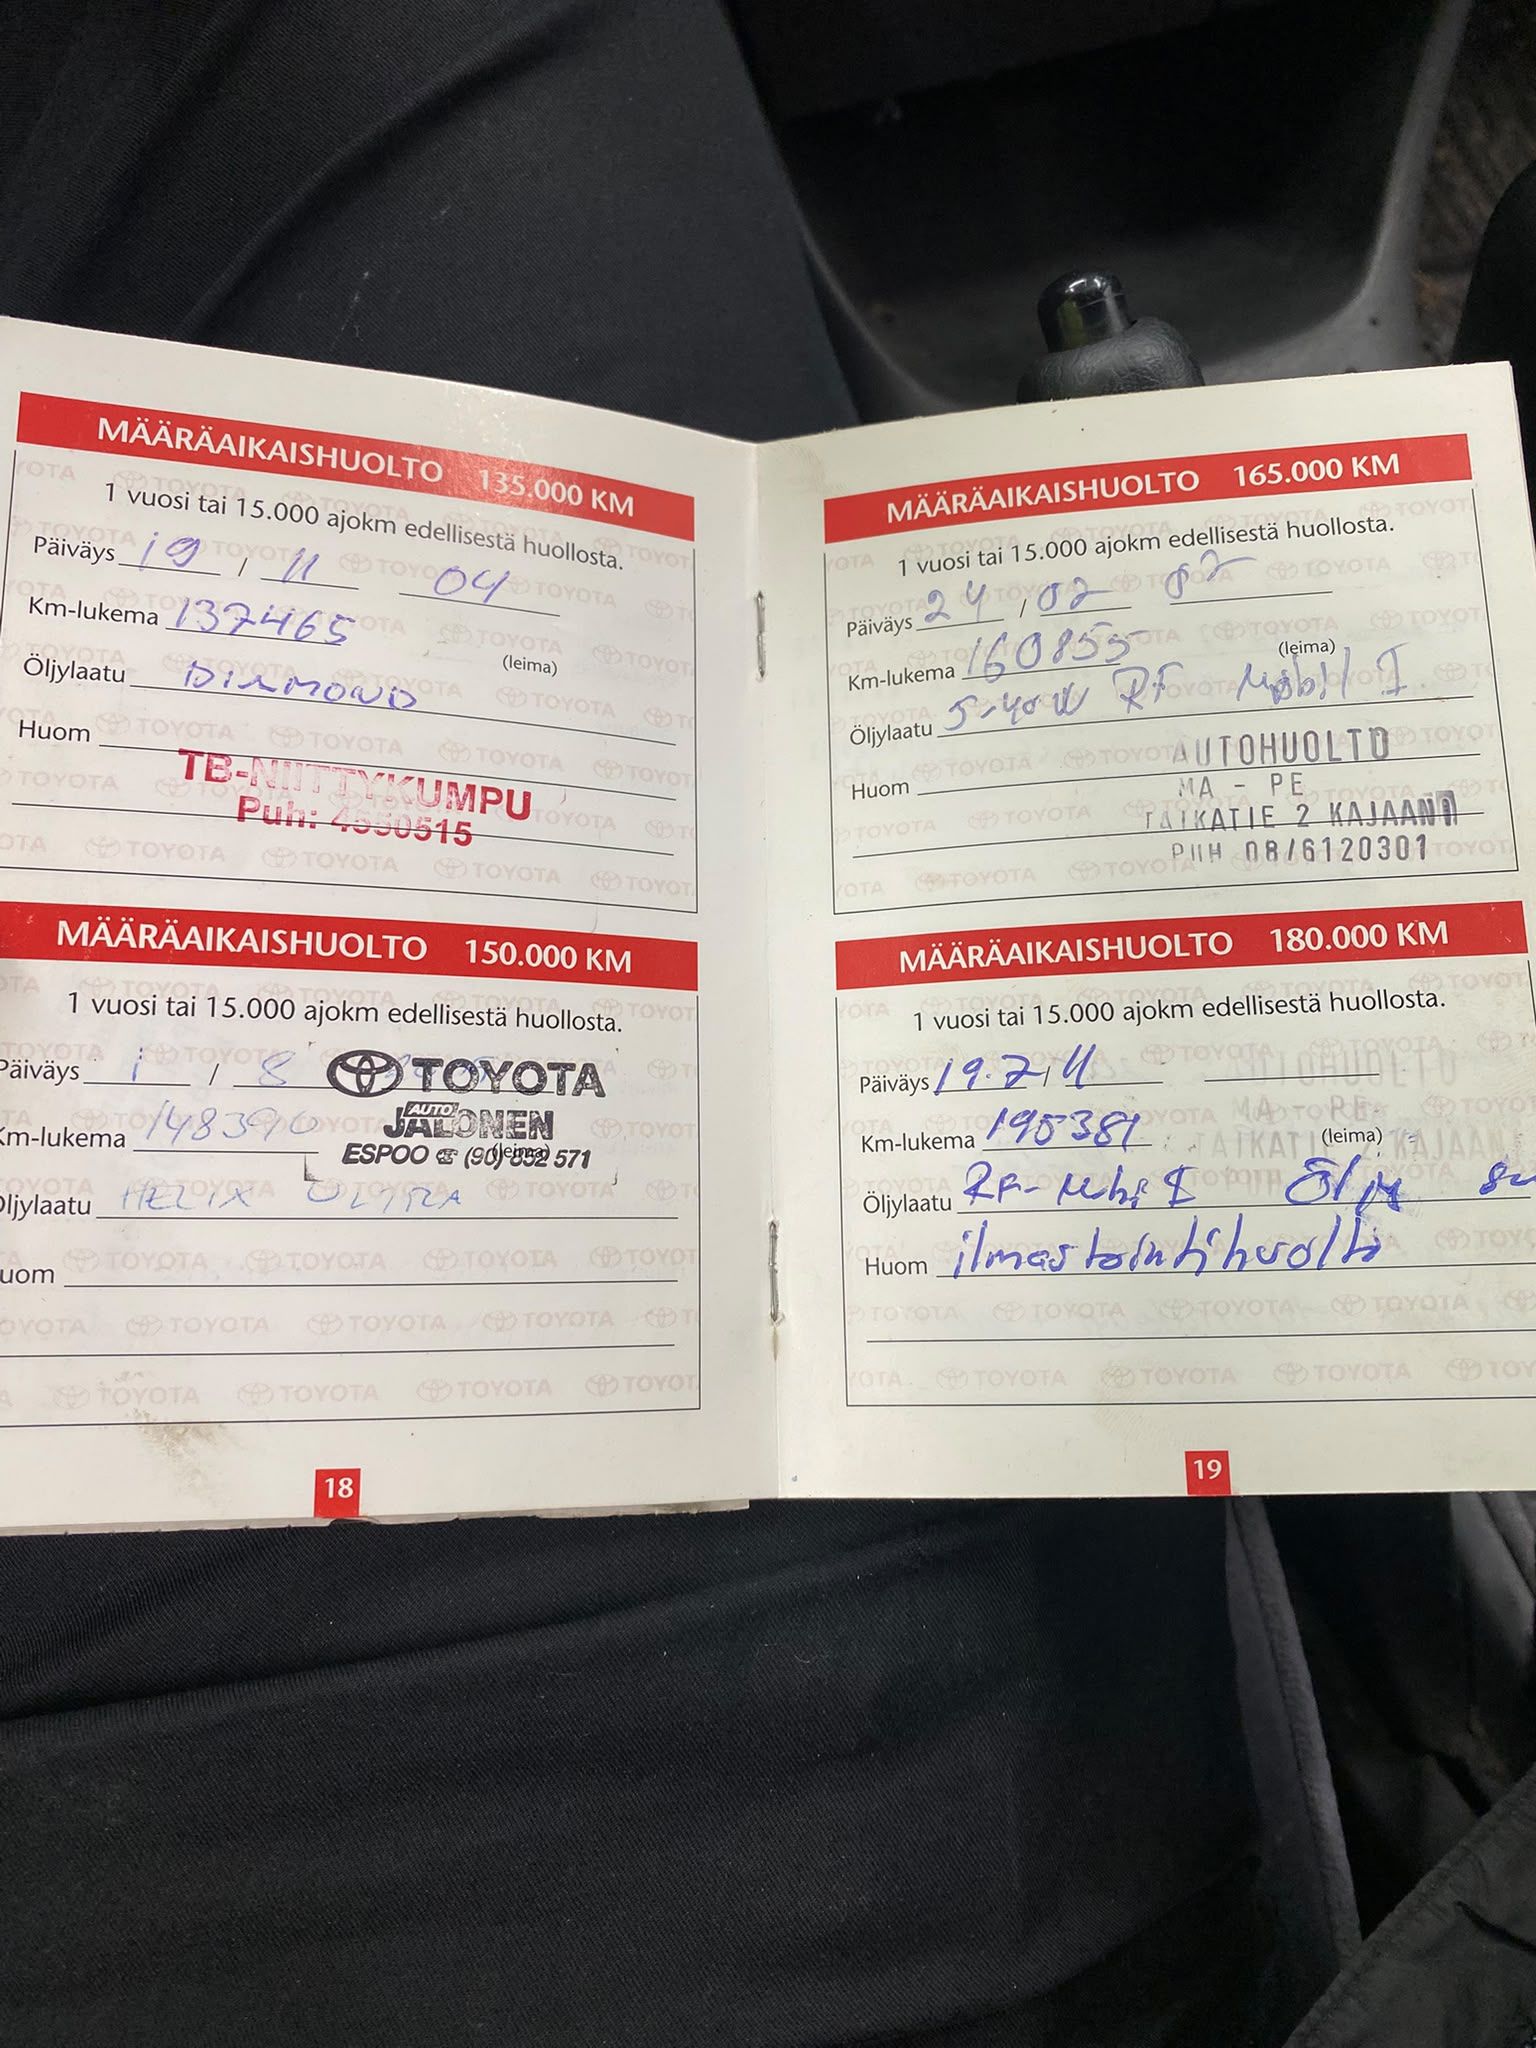 MÄÄRÄAIKAISHUOLTO 135.000 KM
1 vuosi tai 15.000 ajokm edellisestä huollosta.
Päiväys 19 / 11 04
Km-lukema 137465
(leima)
Öljylaatu DIAMOND
Huom
TB-NIITTYKUMPU
Puh: 4550515
MÄÄRÄAIKAISHUOLTO 150.000 KM
1 vuosi tai 15.000 ajokm edellisestä huollosta.
Päiväys 1 / 8
TOYOTA
AUTO
JALONEN
ESPOO ☎ (90) 852 571
Km-lukema 148390
(leima)
Öljylaatu HELIX ULTRA
Huom
18
MÄÄRÄAIKAISHUOLTO 165.000 KM
1 vuosi tai 15.000 ajokm edellisestä huollosta.
Päiväys 24 / 02
Km-lukema 160855
(leima)
Öljylaatu 5-40W RF Mobil I
AUTOHUOLTO
Huom
MA - PE
TAIKATIE 2 KAJAANI
PUH 08/6120301
MÄÄRÄAIKAISHUOLTO 180.000 KM
1 vuosi tai 15.000 ajokm edellisestä huollosta.
Päiväys 19.7 / 11
AUTOHUOLTO
MA - PE
Km-lukema 195381
(leima)
TAIKATIE 2 KAJAANI
Öljylaatu RF-
Huom ilmastointihuolto
19